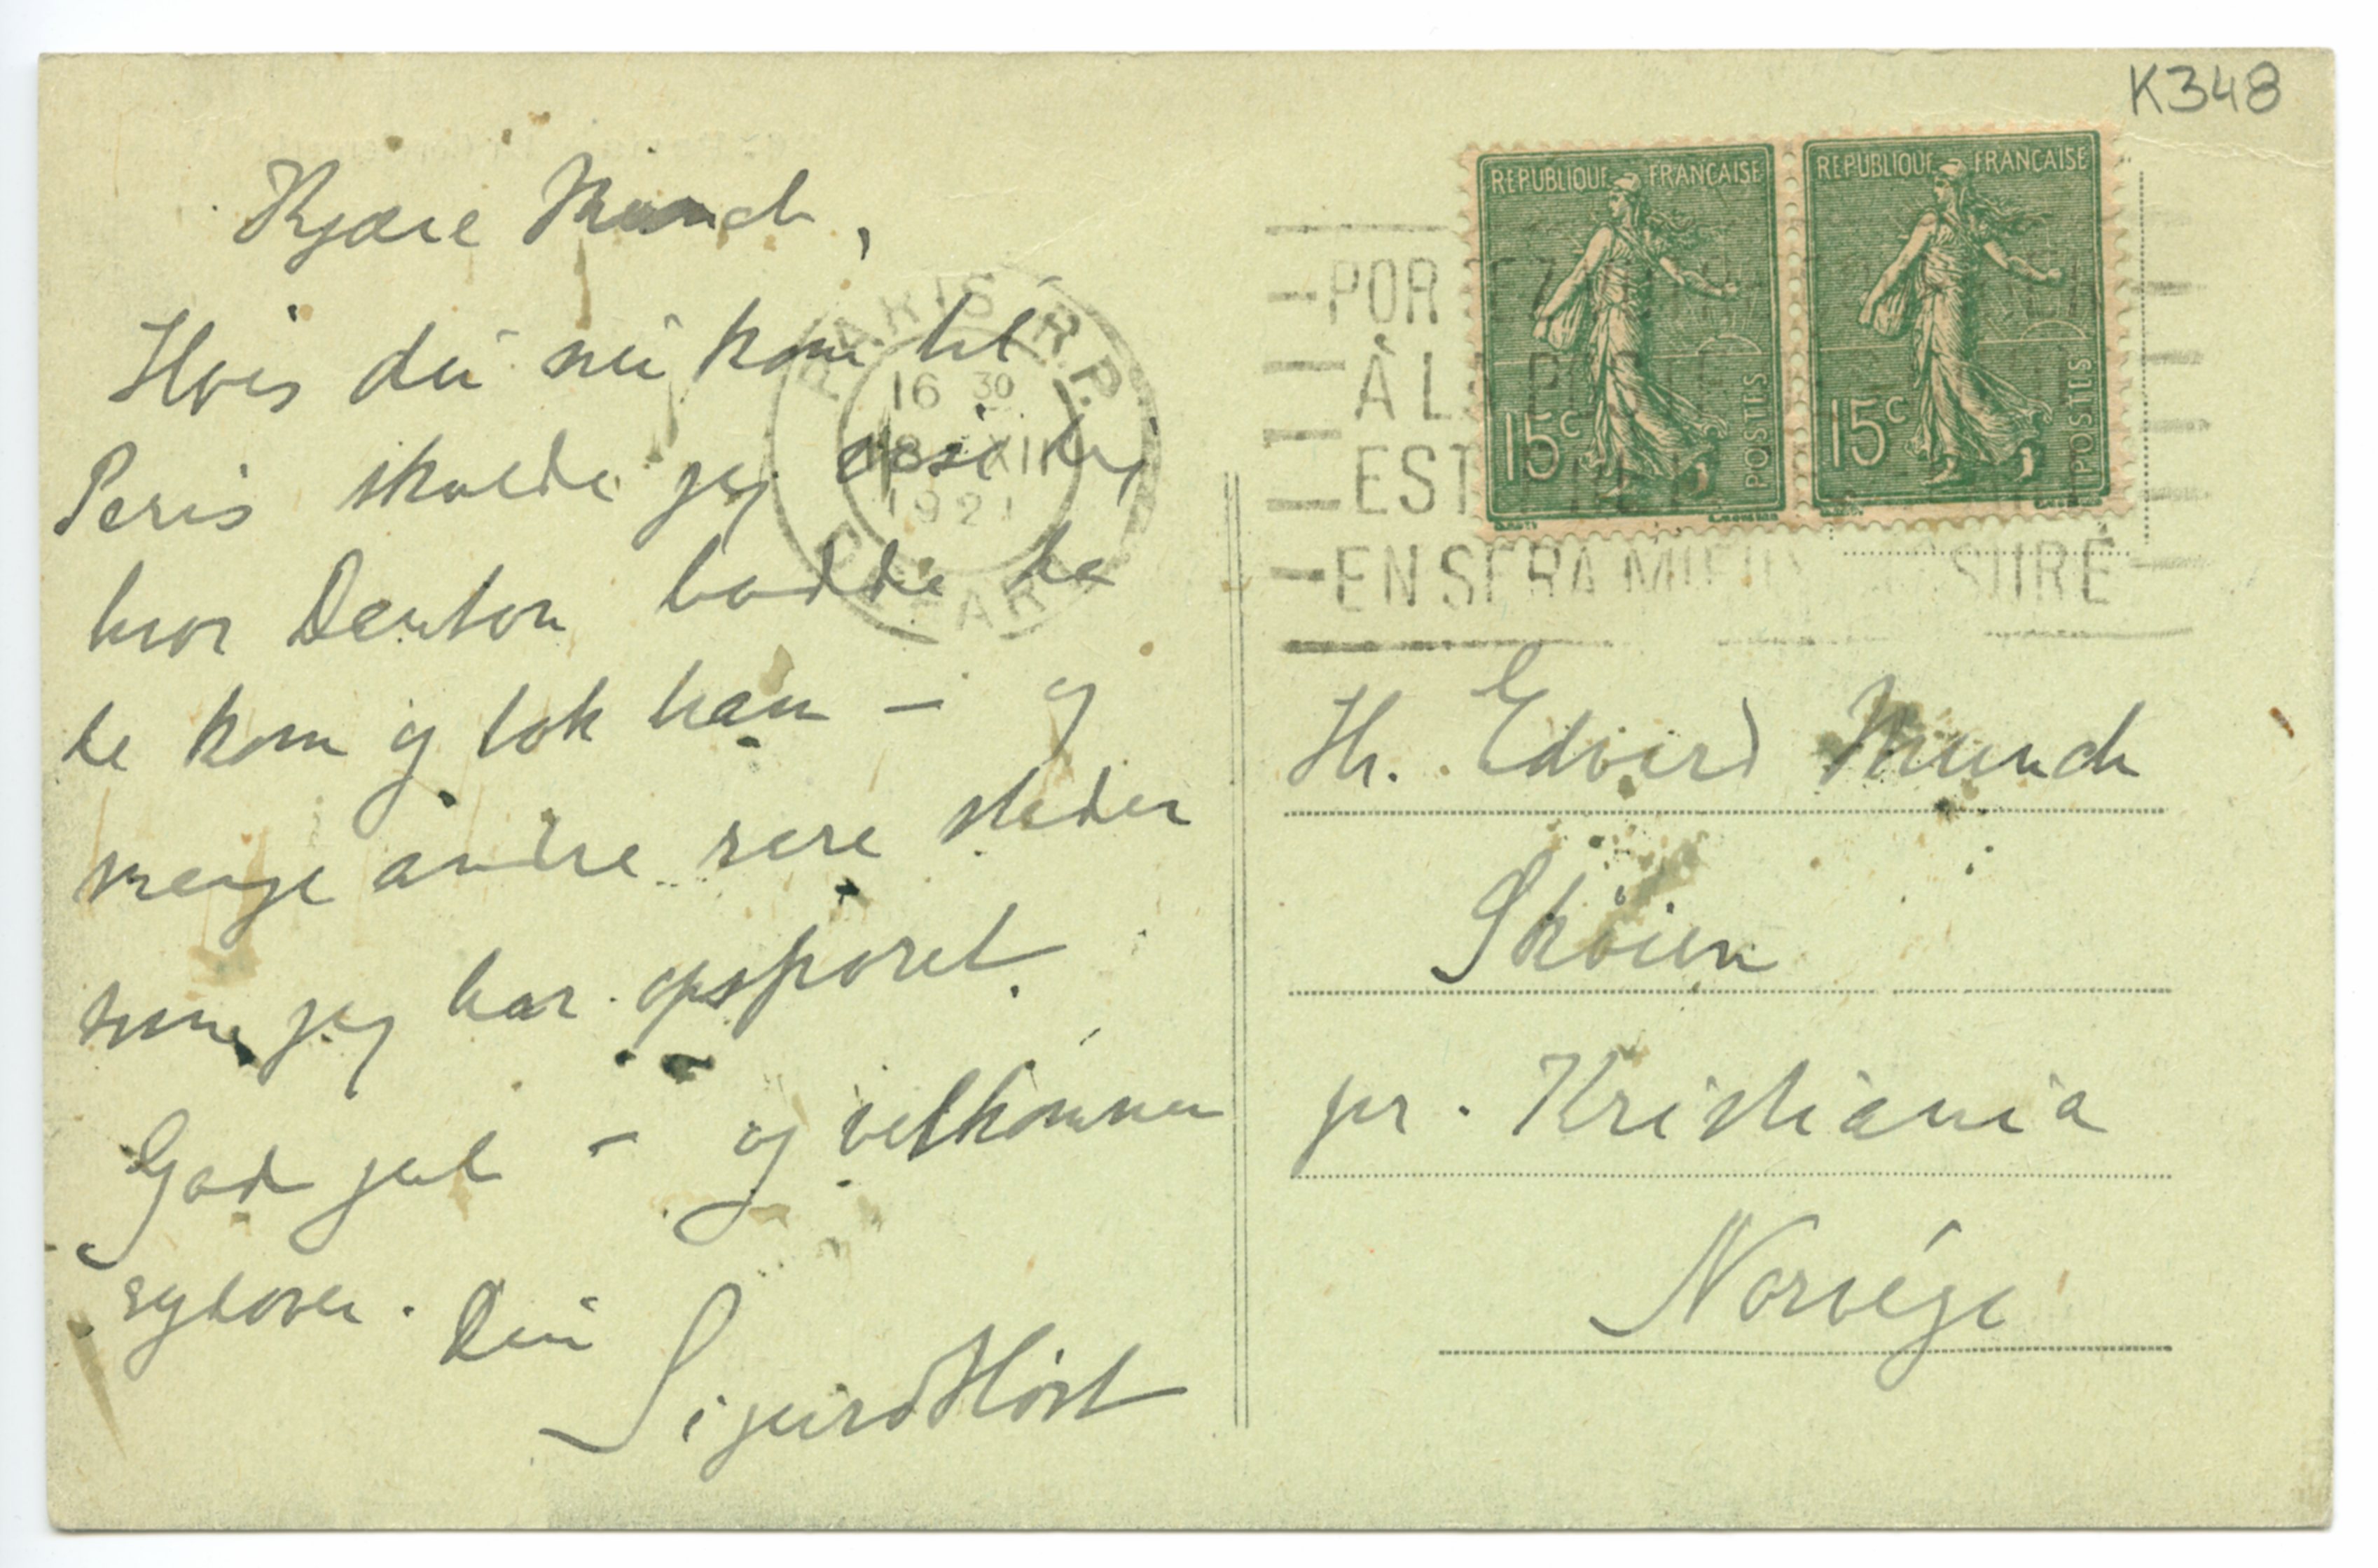 K348
Kjære Munch,
Hvis du nu kom til
Paris skulde jeg vise dig
hvor Danton bodde da
de kom og tok ham – og
mange andre rare steder
som jeg har opsporet.
God jul – og velkommen
sydover. Din
Sigurd Høst
PARIS R.P.
16 30
18 XII
1921
DÉPART
REPUBLIQUE FRANCAISE
15c POSTES
REPUBLIQUE FRANCAISE
15c POSTES
POR
À LA
EST
EN SERA MIEUX SURÉ
Hr. Edvard Munch
Skøien
pr. Kristiania
Norvége